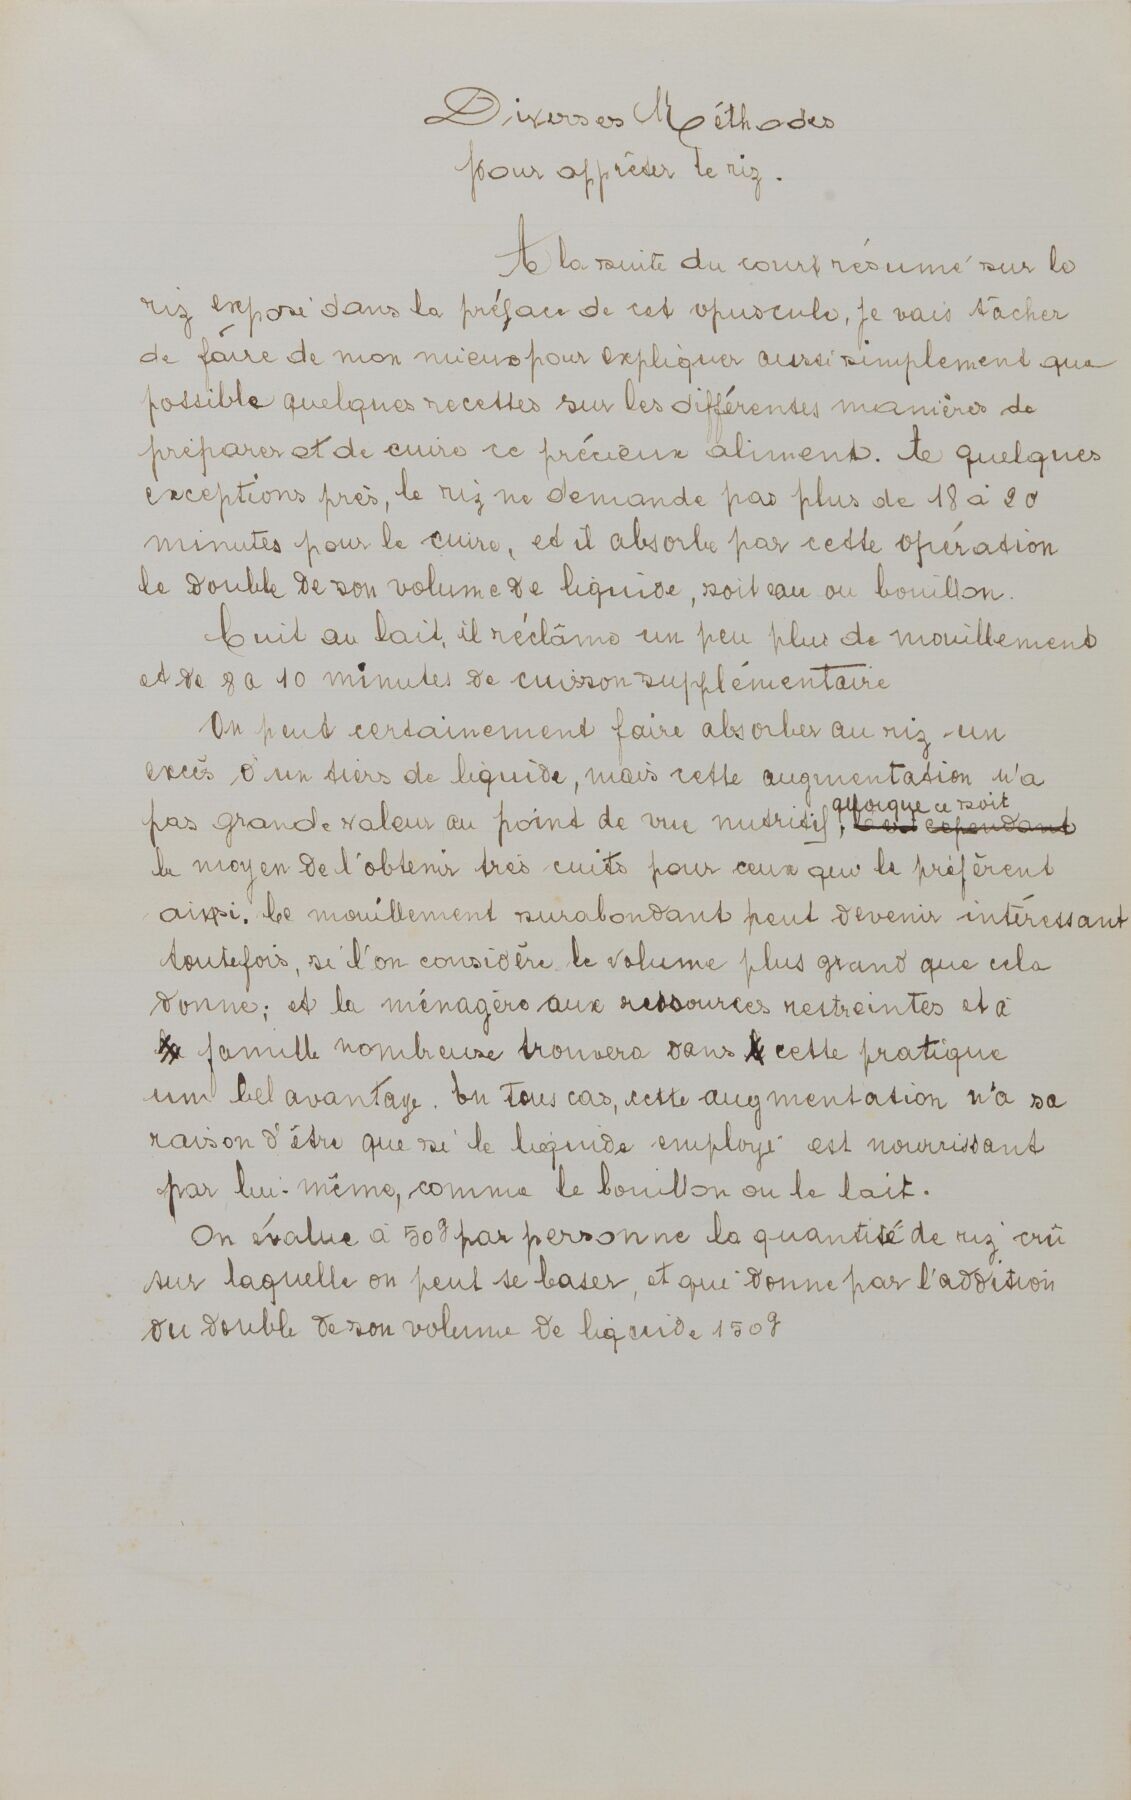 Diverses Méthodes
pour apprêter le riz.
A la suite du court résumé sur le
riz exposé dans la préface de cet opuscule, je vais tâcher
de faire de mon mieux pour expliquer aussi simplement que
possible quelques recettes sur les différentes manières de
préparer et de cuire ce précieux aliment. A quelques
exceptions près, le riz ne demande pas plus de 18 à 20
minutes pour le cuire, et il absorbe par cette opération
le double de son volume de liquide, soit eau ou bouillon.
Cuit au lait, il réclâme un peu plus de mouillement
et de 8 a 10 minutes de cuisson supplémentaire
On peut certainement faire absorber au riz un
excès d'un tiers de liquide, mais cette augmentation n'a
quoique ce soit
pas grande valeur au point de vue nutritif, c'est cependant
le moyen de l'obtenir très cuits pour ceux qui le préfèrent
ainsi. Ce mouillement surabondant peut devenir intéressant
toutefois, si l'on considère le volume plus grand que cela
donne; et la ménagère aux ressources restreintes et à
la famille nombreuse trouvera dans cette pratique
un bel avantage. En tous cas, cette augmentation n'a sa
raison d'être que si le liquide employé est nourrissant
par lui-même, comme le bouillon ou le lait.
On évalue à 50g par personne la quantité de riz crû
sur laquelle on peut se baser, et qui donne par l'addition
du double de son volume de liquide 150g